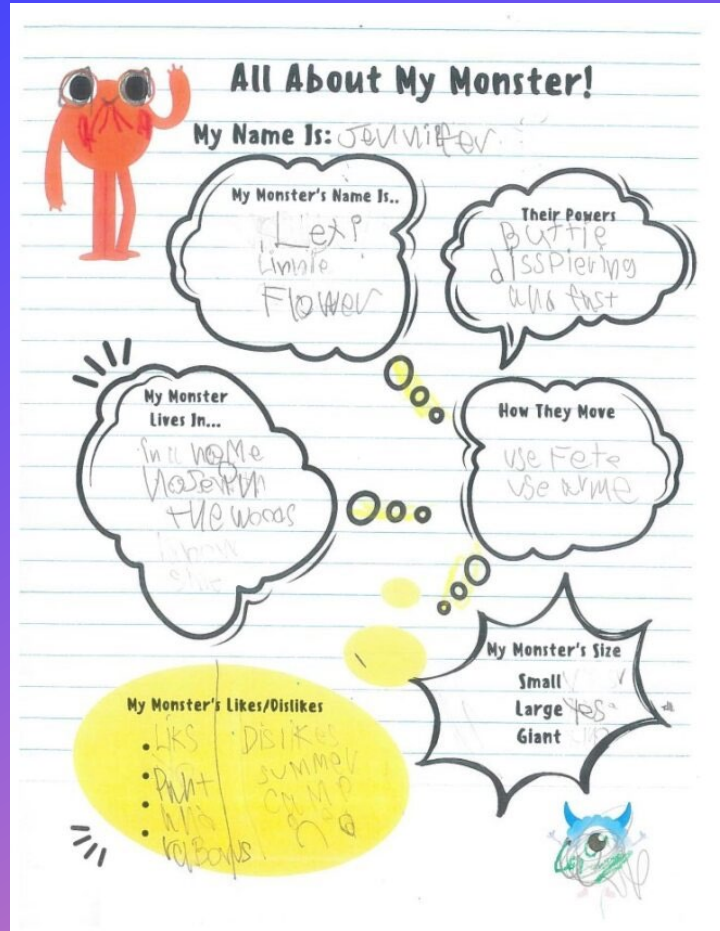 All About My Monster!
My Name Is: Jennifer
My Monster's Name Is..
Lexi
Linnie
Flower
Their Powers
Buttie
dissPiering
and fast
My Monster
Lives In...
in a home
in
the woods
How They Move
use Fete
use arme
My Monster's Size
Small
Large Yes
Giant
My Monster's Likes/Dislikes
LIKS
Paint
and
raBows
DISlikes
summer
CaMP